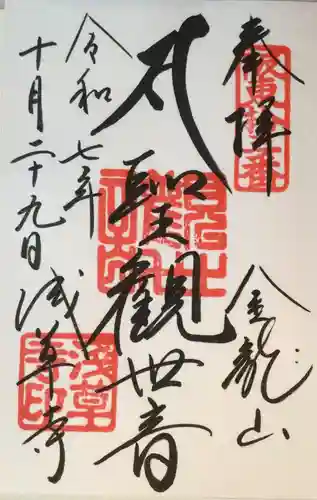 奉拝
坂東十三番
金龍山
聖觀世音
令和七年
十月二十九日
浅草寺
浅草寺印